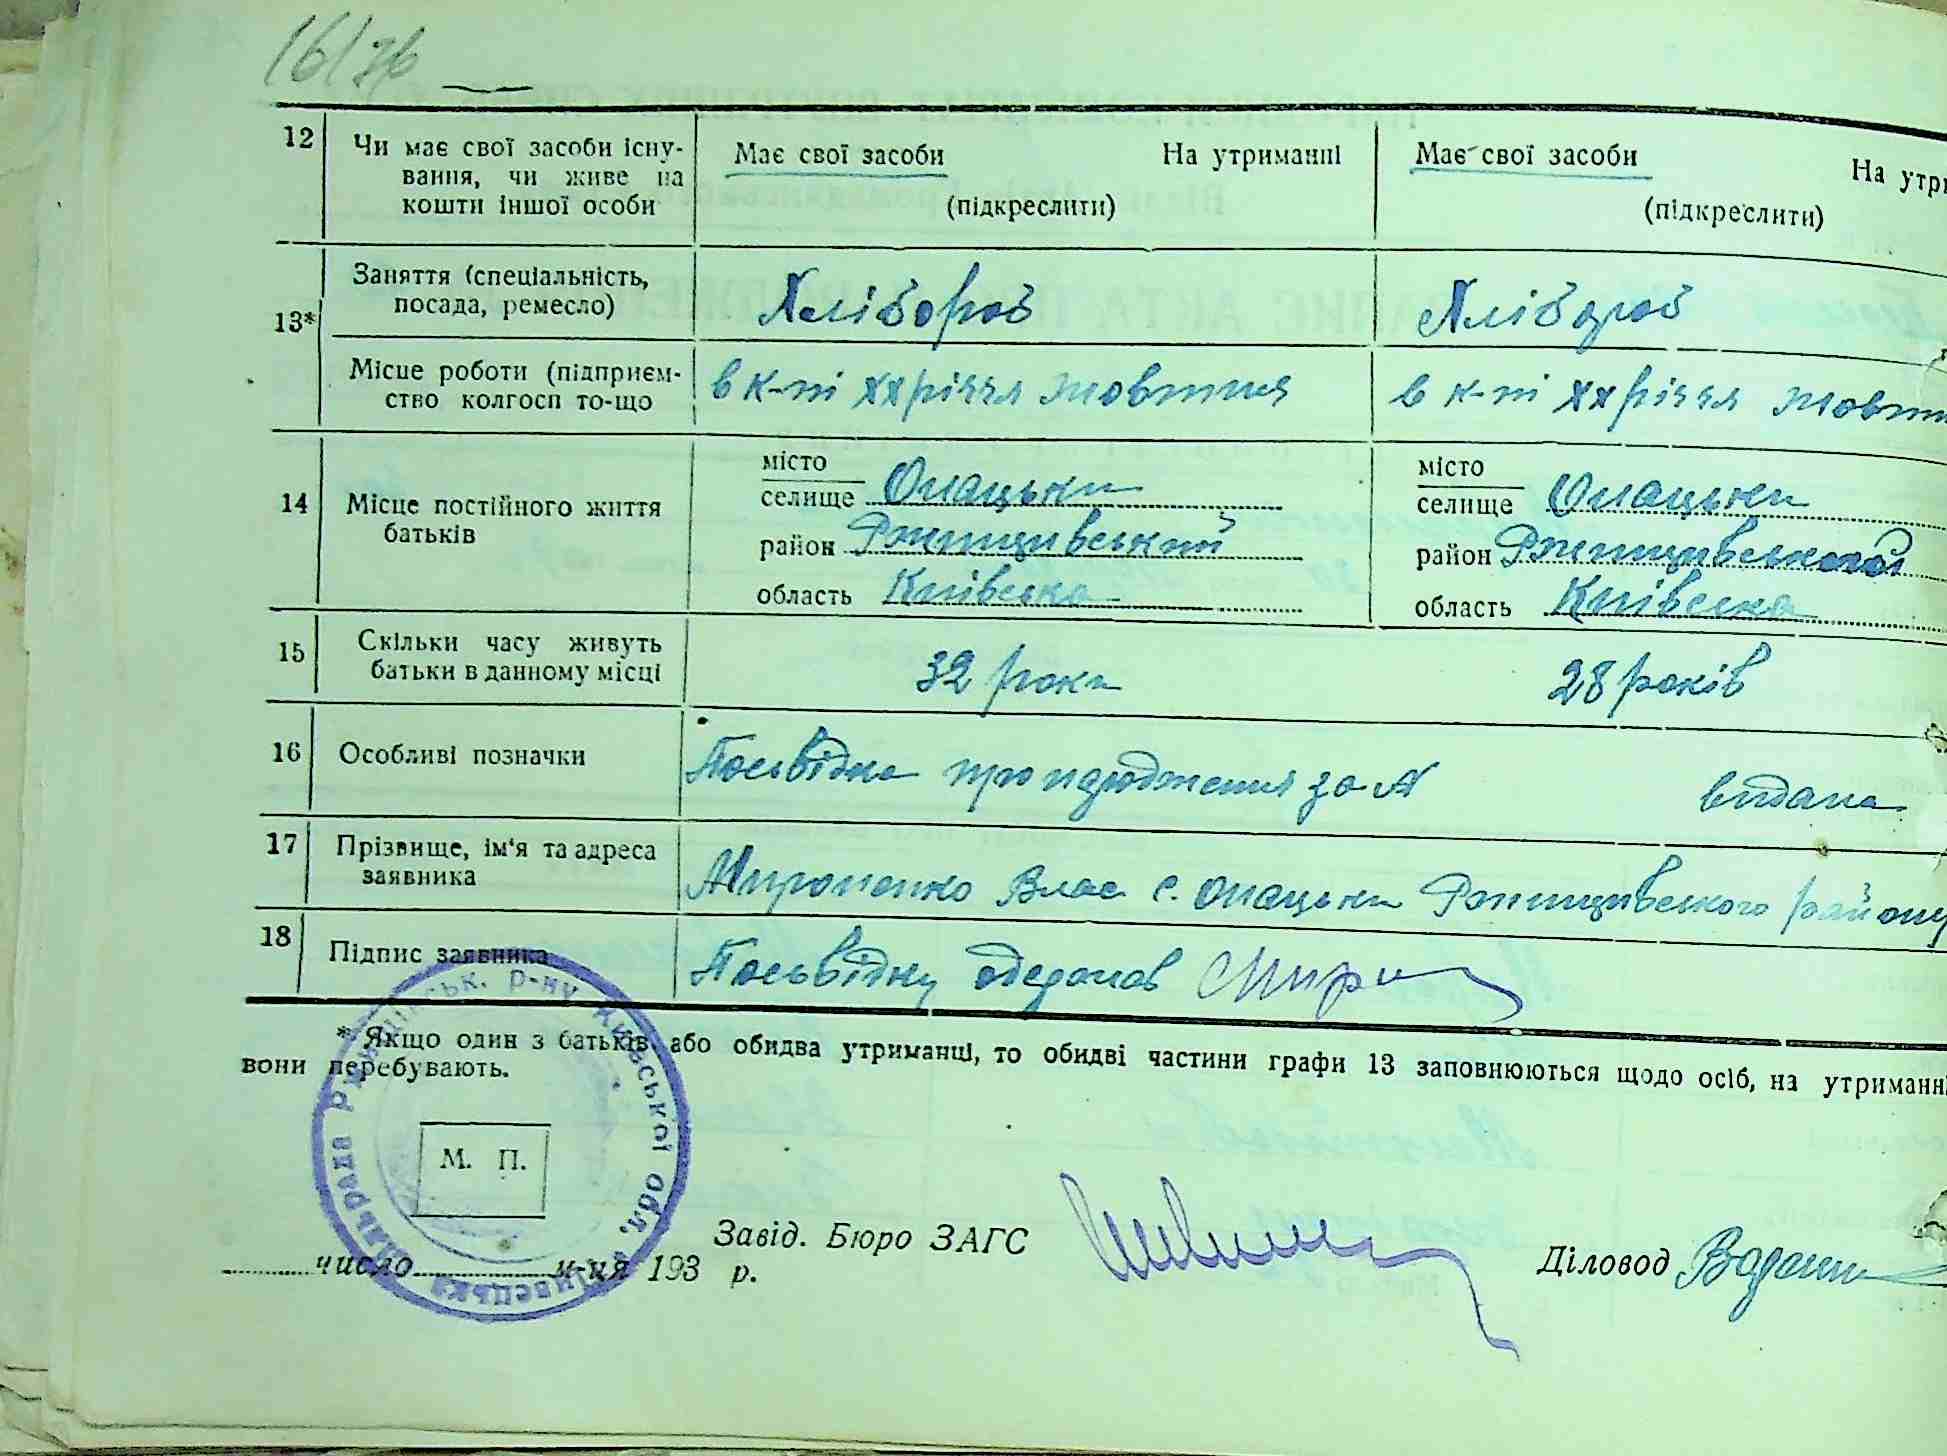 16/зв
12 Чи має свої засоби існу- Має свої засоби На утриманні Має свої засоби На утри
вання, чи живе на
кошти іншої особи (підкреслити) (підкреслити)
13* Заняття (спеціальність, Хлібороб Хлібороб
посада, ремесло)
Місце роботи (підприєм- в к-пі ХХ річчя жовтня в к-пі ХХ річчя жовтн
ство колгосп то-що
14 Місце постійного життя місто місто
батьків селище Опацьки селище Опацьки
район Ржищивський район Ржищивського
область Київська область Київська
15 Скільки часу живуть 32 роки 28 років
батьки в данному місці
16 Особливі позначки Посвідка про народження за № видана
17 Прізвище, ім'я та адреса Мироненко Влас с. Опацьки Ржищивського району
заявника
18 Підпис заявника Посвідку одержав Мирон
* Якщо один з батьків або обидва утриманці, то обидві частини графи 13 заповнюються щодо осіб, на утриманні
вони перебувають.
М. П.
Завід. Бюро ЗАГС Діловод
число м-ця 193 р.